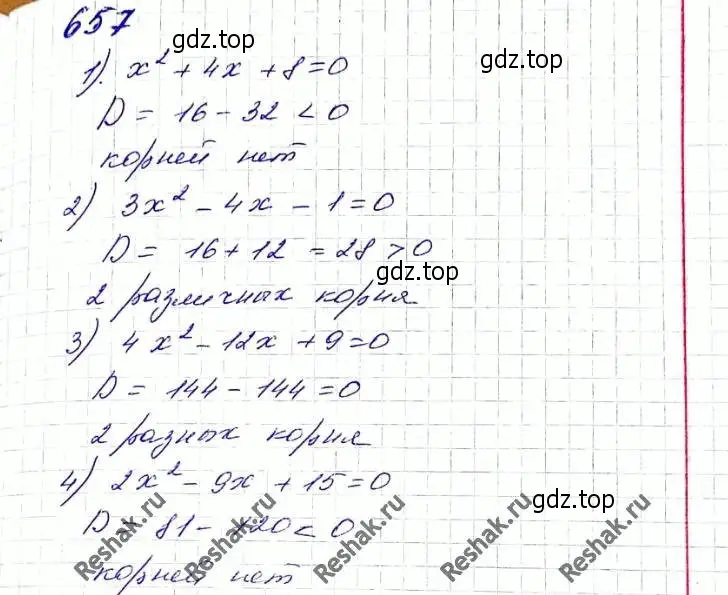 657
gdz.top
gdz.top
1). x² + 4x + 8 = 0
D = 16 - 32 < 0
корней нет
2) 3x² - 4x - 1 = 0
D = 16 + 12 = 28 > 0
gdz.top
2 различных корня
3) 4x² - 12x + 9 = 0
D = 144 - 144 = 0
2 разных корня
4) 2x² - 9x + 15 = 0
gdz.top
D = 81 - 120 < 0
корней нет
Reshak.ru
Reshak.ru
Reshak.ru
Reshak.ru
Reshak.ru